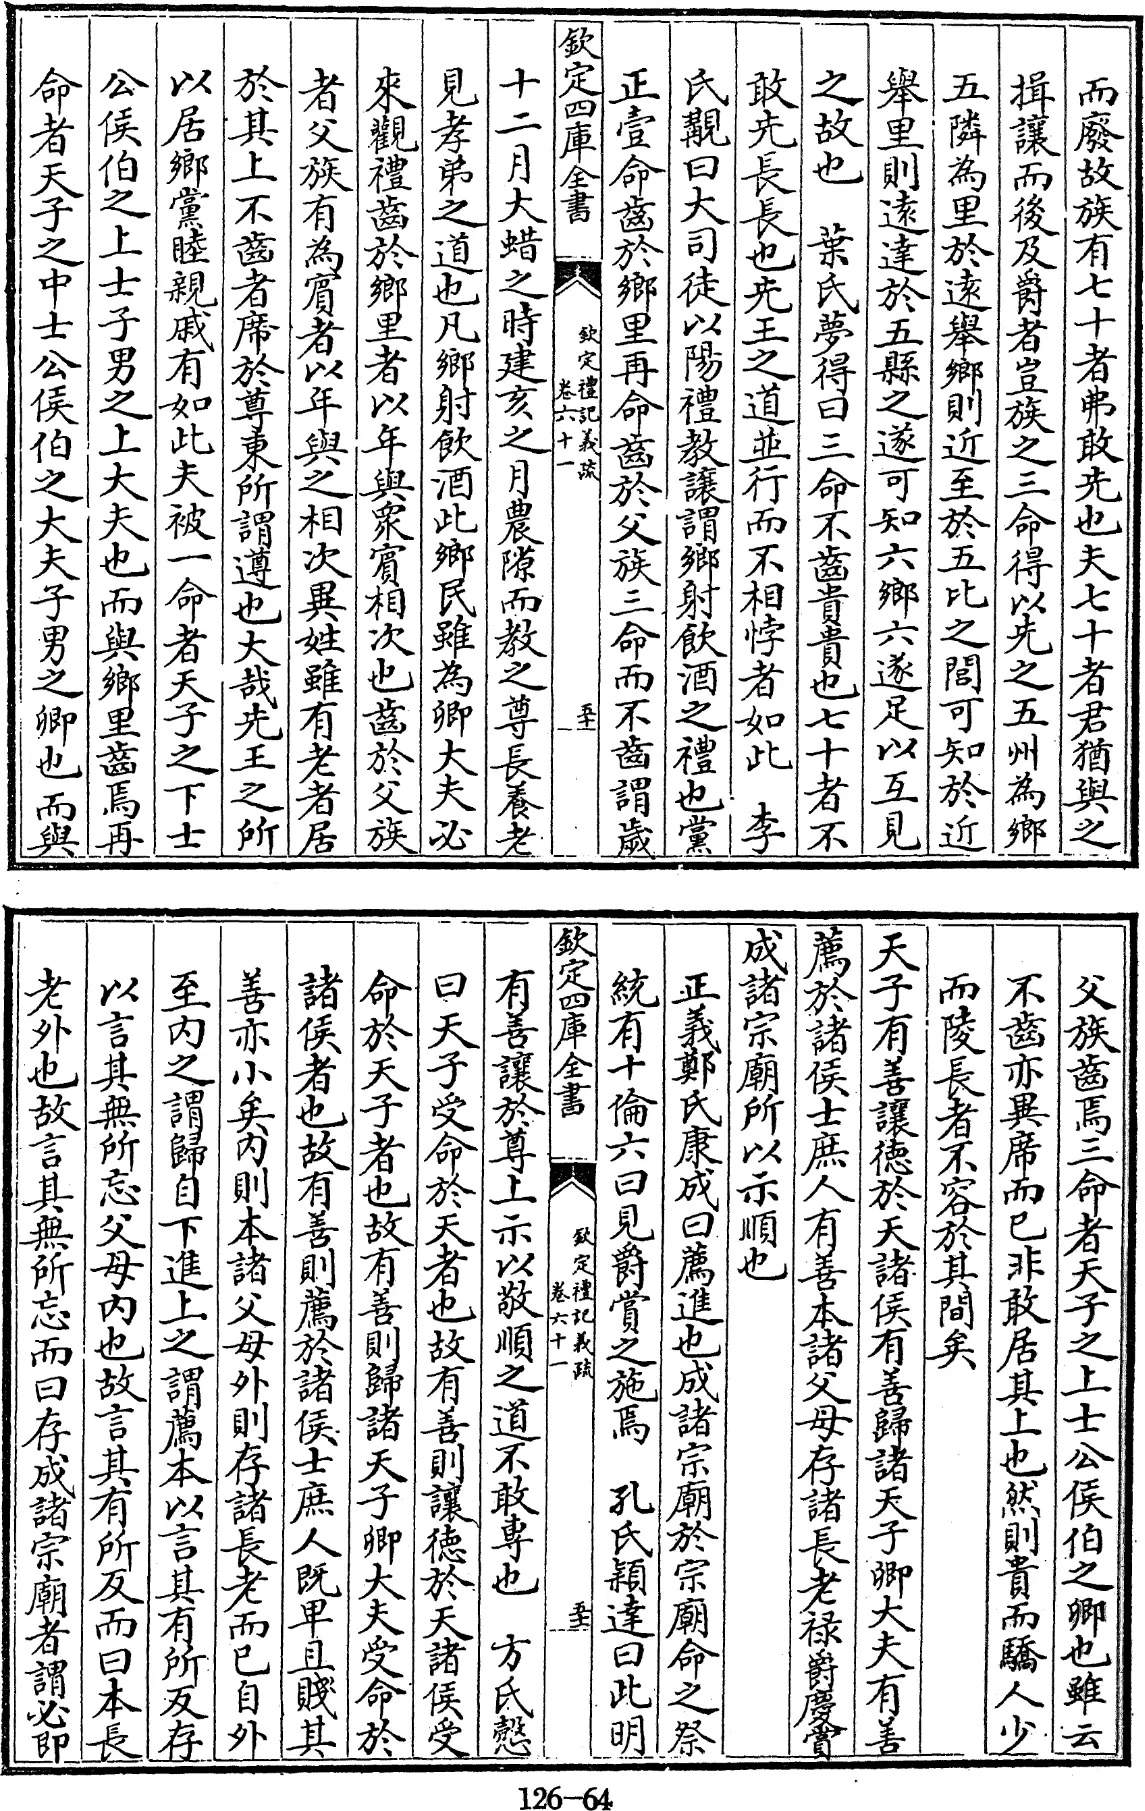 而廢故族有七十者弗敢先也夫七十者君猶與之
揖讓而後及爵者豈族之三命得以先之五州為鄉
五隣為里於遠舉鄉則近至於五比之閭可知於近
舉里則遠達於五縣之遂可知六鄉六遂足以互見
之故也　葉氏夢得曰三命不齒貴貴也七十者不
敢先長長也先王之道並行而不相悖者如此　李
氏覯曰大司徒以陽禮教讓謂鄉射飲酒之禮也黨
正壹命齒於鄉里再命齒於父族三命而不齒謂歲
欽定四庫全書
欽定禮記義疏
卷六十一
五十一
十二月大蜡之時建亥之月農隙而教之尊長養老
見孝弟之道也凡鄉射飲酒此鄉民雖為卿大夫必
來觀禮齒於鄉里者以年與衆賓相次也齒於父族
者父族有為賓者以年與之相次異姓雖有老者居
於其上不齒者席於尊東所謂遵也大哉先王之所
以居鄉黨睦親戚有如此夫被一命者天子之下士
公侯伯之上士子男之上大夫也而與鄉里齒焉再
命者天子之中士公侯伯之大夫子男之卿也而與
父族齒焉三命者天子之上士公侯伯之卿也雖云
不齒亦異席而已非敢居其上也然則貴而驕人少
而陵長者不容於其間矣
天子有善讓德於天諸侯有善歸諸天子卿大夫有善
薦於諸侯士庶人有善本諸父母存諸長老祿爵慶賞
成諸宗廟所以示順也
正義鄭氏康成曰薦進也成諸宗廟於宗廟命之祭
統有十倫六曰見爵賞之施焉　孔氏穎達曰此明
欽定四庫全書
欽定禮記義疏
卷六十一
有善讓於尊上示以敬順之道不敢專也　方氏慤
曰天子受命於天者也故有善則讓德於天諸侯受
命於天子者也故有善則歸諸天子卿大夫受命於
諸侯者也故有善則薦於諸侯士庶人既卑且賤其
善亦小矣内則本諸父母外則存諸長老而已自外
至内之謂歸自下進上之謂薦本以言其有所反存
以言其無所忘父母内也故言其有所反而曰本長
老外也故言其無所忘而曰存成諸宗廟者謂必即
126-64